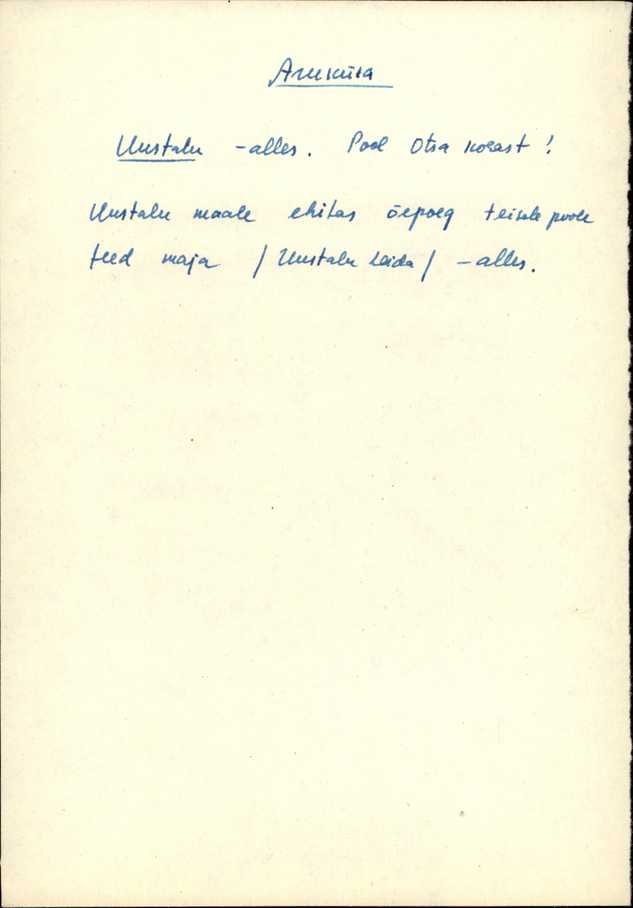 Aruküla
Uustalu - alles. Pool Otsa kohast!
Uustalu maale ehitas õepoeg teisele poole
teed maja /Uustalu Leida/ - alles.